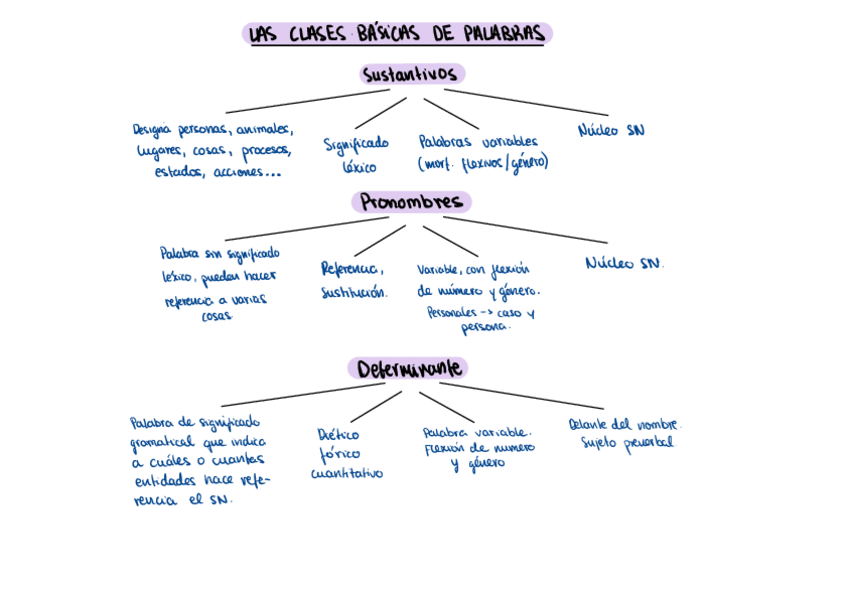 LAS CLASES BÁSICAS DE PALABRAS
Sustantivos
Designa personas, animales,
lugares, cosas, procesos,
estados, acciones...
Significado
léxico
Palabras variables
(morf. flexivos/género)
Núcleo SN
Pronombres
Palabra sin significado
léxico, pueden hacer
referencia a varias
cosas.
Referencia,
sustitución.
Variable, con flexión
de número y género.
Personales -> caso y
persona.
Núcleo SN.
Determinante
Palabra de significado
gramatical que indica
a cuáles o cuantas
entidades hace refe-
rencia el SN.
Diético
fórico
cuantitativo
Palabra variable.
Flexión de numero
y género
Delante del nombre.
Sujeto preverbal